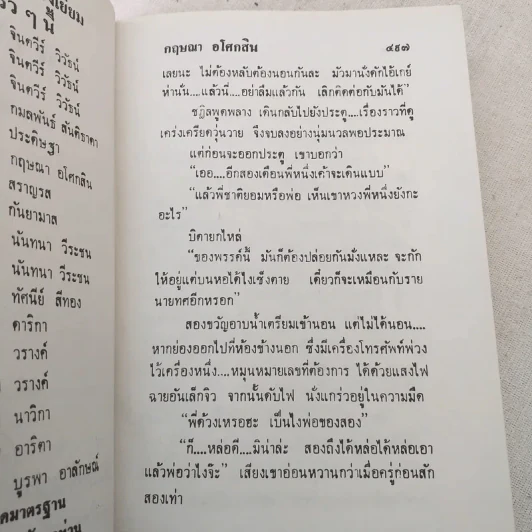 งเยี่ยม
ๆนี้
จินตวีร์ วิวัธน์
จินตวีร์ วิวัธน์
จินตวีร์ วิวัธน์
กมลพันธ์ สันติธาดา
ประดิษฐา
กฤษณา อโศกสิน
สราญรส
กันยามาส
นันทนา วีระชน
นันทนา วีระชน
ทัศนีย์ สีทอง
ดาริกา
วรางค์
วรางค์
นาวิกา
อาริตา
บูรพา อาลักษณ์
ดมาตรฐาน
กฤษณา อโศกสิน ๔๙๗
เลยนะ ไม่ต้องหลับต้องนอนกันละ มัวมานั่งดักไอ้เกย์
ห่านั่น....แล้วนี่....อย่าลืมแล้วกัน เลิกติดต่อกับมันได้”
ชฎิลพูดพลาง เดินกลับไปยังประตู....เรื่องราวที่ดู
เคร่งเครียดวุ่นวาย จึงจบลงอย่างนุ่มนวลพอประมาณ
แต่ก่อนจะออกประตู เขาบอกว่า
“เออ....อีกสองเดือนพี่หนึ่งเค้าจะเดินแบบ”
“แล้วพี่ชาติยอมหรือพ่อ เห็นเขาหวงพี่หนึ่งยังกะ
อะไร”
บิดายกไหล่
“ของพรรค์นี้ มันก็ต้องปล่อยกันมั่งแหละ จะกัก
ให้อยู่แต่บนหอได้ไงเซ็งตาย เดี๋ยวก็จะเหมือนกับราย
นายทศอีกหรอก”
สองขวัญอาบน้ำเตรียมเข้านอน แต่ไม่ได้นอน....
หากย่องออกไปที่ห้องข้างนอก ซึ่งมีเครื่องโทรศัพท์พ่วง
ไว้เครื่องหนึ่ง....หมุนหมายเลขที่ต้องการ ได้ด้วยแสงไฟ
ฉายอันเล็กจิ๋ว จากนั้นดับไฟ นั่งแกร่วอยู่ในความมืด
“พี่ด้วงเหรอฮะ เป็นไงพ่อของสอง”
“ก็....หล่อดี....มิน่าล่ะ สองถึงได้หล่อได้หล่อเอา
แล้วพ่อว่าไงจ๊ะ” เสียงเขาอ่อนหวานกว่าเมื่อครู่ก่อนสัก
สองเท่า